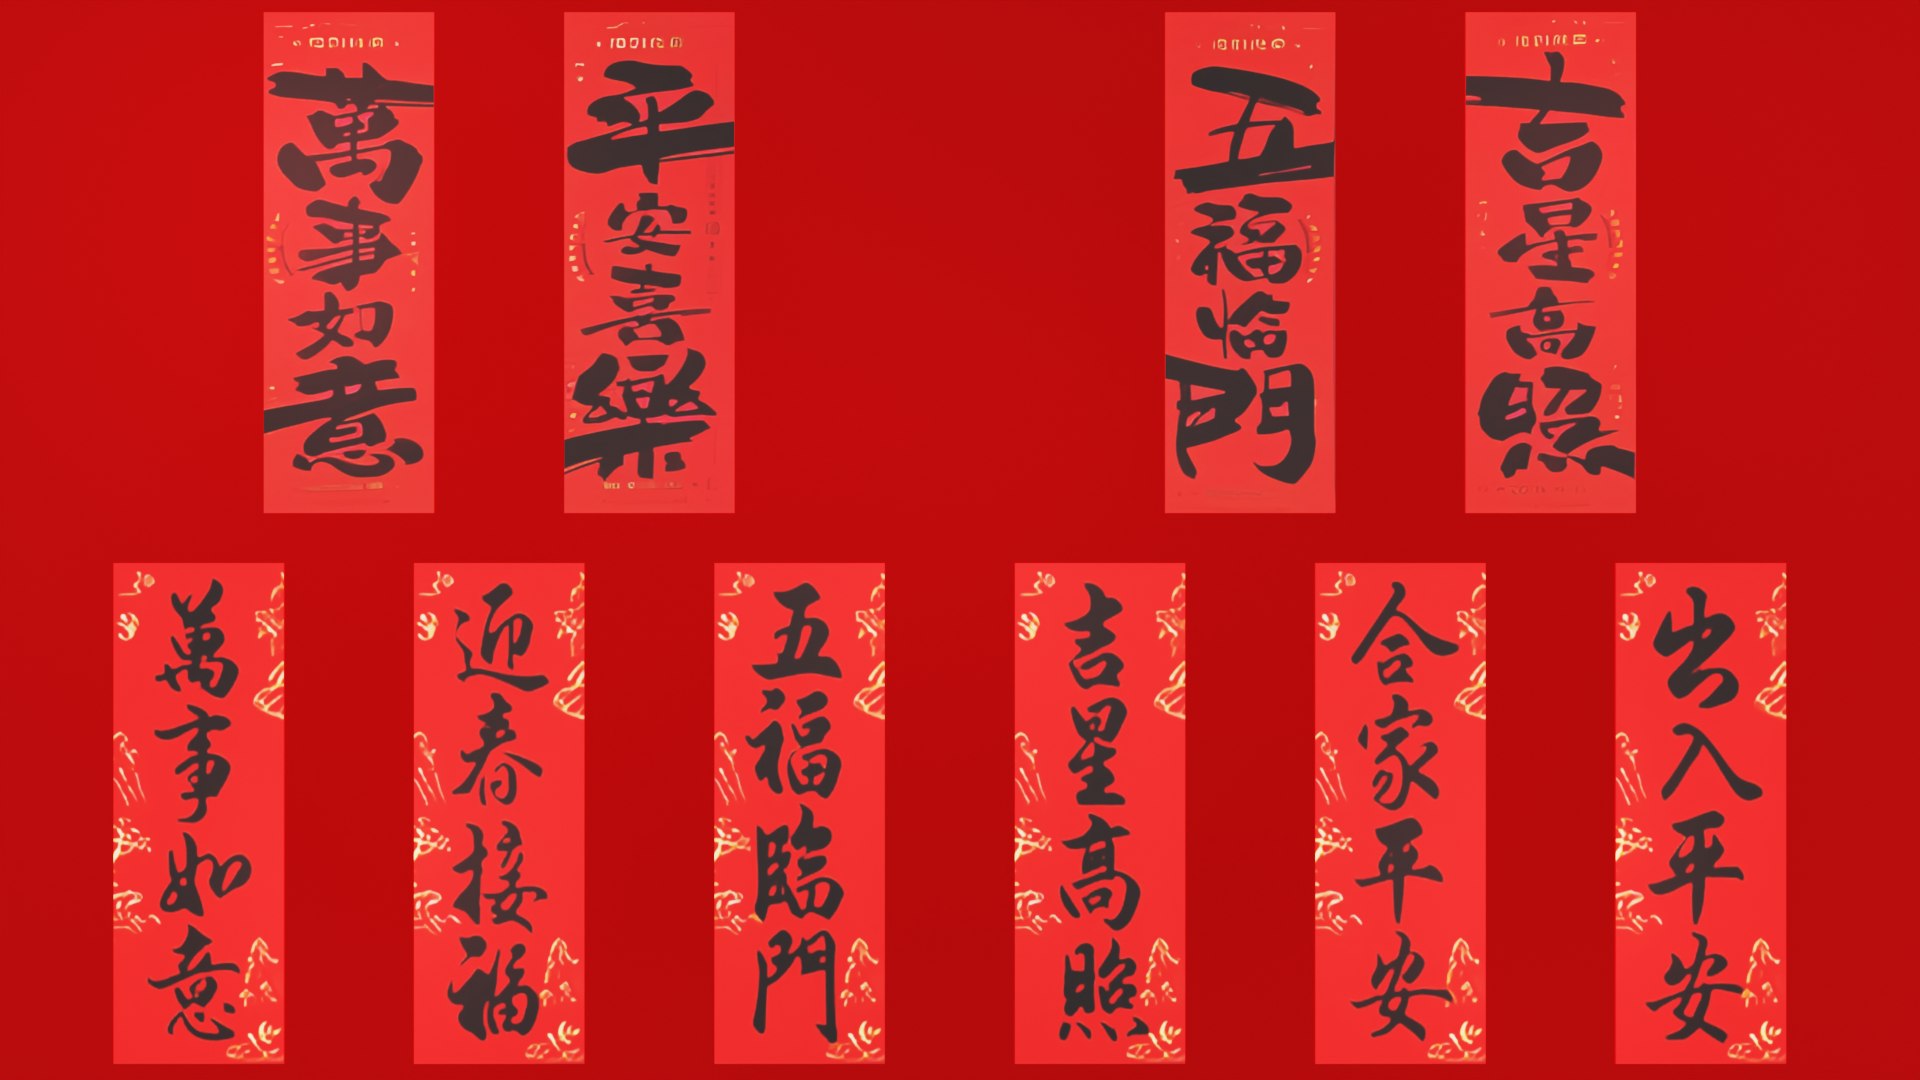 萬事如意
平安喜樂
五福臨門
吉星高照
萬事如意
迎春接福
五福臨門
吉星高照
合家平安
出入平安